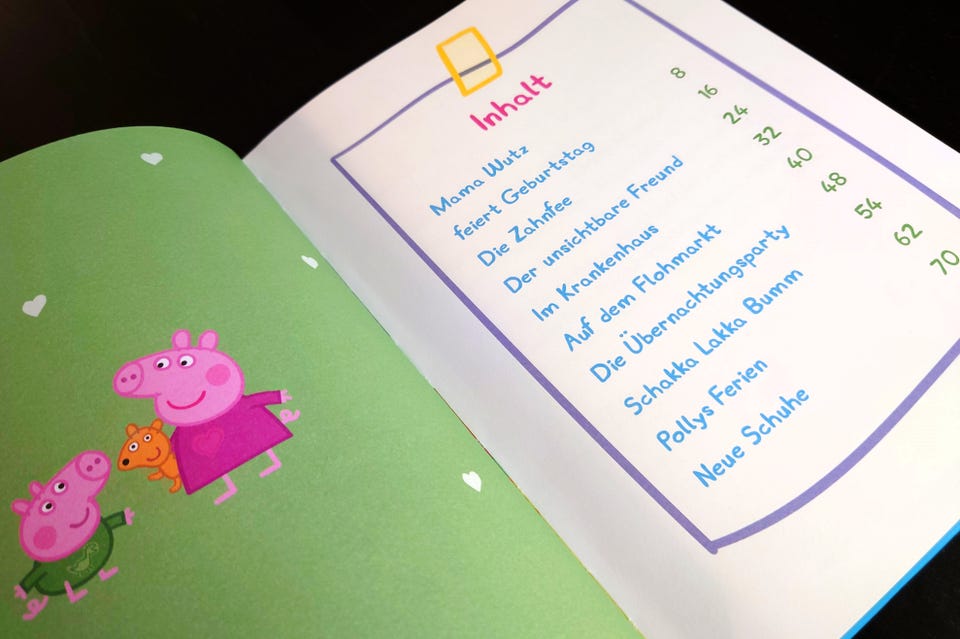 Inhalt
Mama Wutz
feiert Geburtstag 8
Die Zahnfee 16
Der unsichtbare Freund 24
Im Krankenhaus 32
Auf dem Flohmarkt 40
Die Übernachtungsparty 48
Schakka Lakka Bumm 54
Pollys Ferien 62
Neue Schuhe 70